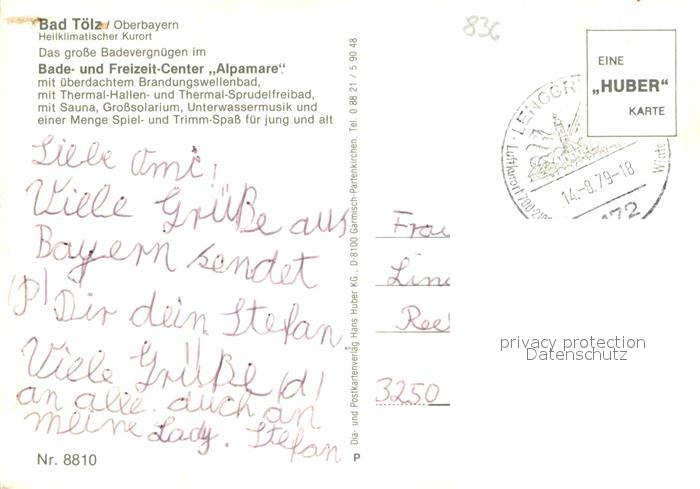 Bad Tölz / Oberbayern
Heilklimatischer Kurort
Das große Badevergnügen im
Bade- und Freizeit-Center „Alpamare“
mit überdachtem Brandungswellenbad,
mit Thermal-Hallen- und Thermal-Sprudelfreibad,
mit Sauna, Großsolarium, Unterwassermusik und
einer Menge Spiel- und Trimm-Spaß für jung und alt
Liebe Omi,
Viele Grüße aus
Bayern sendet
(P) Dir dein Stefan.
Viele Grüße (d)
an alle. auch an
meine Lady. Stefan
Nr. 8810
P
Dia- und Postkartenverlag Hans Huber KG., D-8100 Garmisch-Partenkirchen, Tel. 0 88 21 / 5 90 48
836
EINE
„HUBER“
KARTE
LENGGR
Luftkurort 700-
14.-8.79-18
Winte
172
Frau
Lin
Ree
3250
privacy protection
Datenschutz